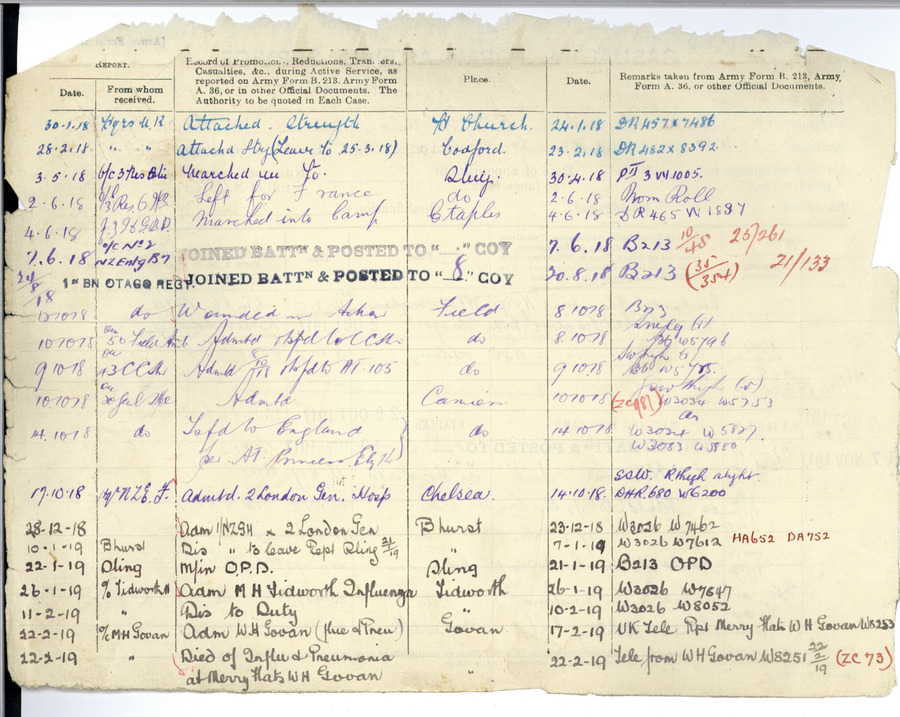 REPORT.
Record of Promotions, Reductions, Transfers, Casualties, &c., during Active Service, as reported on Army Form B. 213, Army Form A. 36, or in other Official Documents. The Authority to be quoted in Each Case.
Place.
Date.
Remarks taken from Army Form B. 213, Army Form A. 36, or other Official Documents.
Date.
From whom received.
30-1-18 Hqrs U.K Attached Strength Church. 24-1-18 DR 457 x 7486
28-2-18 " " Attachd Stg (Leave to 25-3-18) Codford. 23-2-18 DR 482 x 8392
3-5-18 O/C 3 Res Marched in fr. Sling 30-4-18 PII 3 1005.
2-6-18 Left for France do 2-6-18 Nom Roll
4-6-18 Marched into Camp Etaples 4-6-18 DR 465 W 1897
7.6.18 O/C No 2 NZ Entg Bn JOINED BATTN & POSTED TO " " COY 7.6.18 B213 10/45 25/261
20/8/18 1st BN OTAGO REGT. JOINED BATTN & POSTED TO "8." COY 20.8.18 B213 (35/354) 21/133
do Wounded in Action Field 8 10 18
10 10 18 50 Field Amb Admtd & tsfd to CCS do 8 10 18 W5796
9 10 18 43 CCS Admtd tsfd to AT 105 do 9 10 18
10.10.18 Admtd Camiers 10 10 18 W3034 W5753
14.10.18 do Tsfd to England do 14 10 18 W3034 W5827
per At. Princess Elizth W3083 W5880
SGW. R thigh slight.
17.10.18 NZEF Admtd. 2 London Gen. Hosp Chelsea. 14.10.18. DHR.680 W6200
23-12-18 Adm 1/NZGH x 2 London Gen Bhurst 23-12-18 W3026 W7462
10-1-19 Bhurst Dis " to leave Rept Sling 21/1/19 " 7-1-19 W3026 W7612 HA652 DA752
22-1-19 Sling M/in O.P.D. Sling 21-1-19 B213 OPD
26-1-19 O/ Tidworth H Adm M H Tidworth Influenza Tidworth 26-1-19 W3026 W7847
11-2-19 " Dis to Duty " 10-2-19 W3026 W8052
22-2-19 O/C MH Govan Adm WH Govan (flue & Pneu) Govan 17-2-19 UK Tele Rpt Merry Flats W H Govan W8253
22-2-19 " Died of Influ & Pneumonia 22-2-19 Tele from WH Govan W8251 22/2/19 (ZC 73)
at Merry Flats WH Govan "